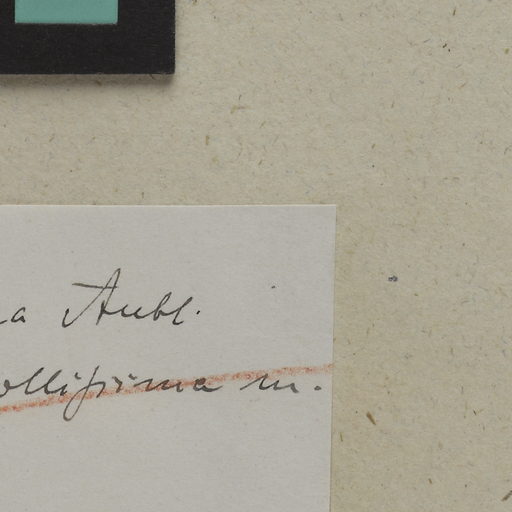 a Aubl.
ollissima m.